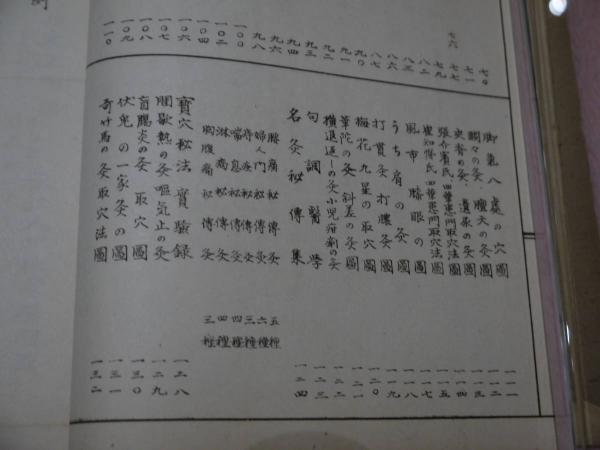 七一
八三
八六
八七
九〇
九一
九二
九三
九四
九六
九八
一〇〇
一〇二
一〇四
一〇六
一〇八
一〇九
一一〇
脚氣八處の穴圖 一一一
の灸、の灸圖 一一二
の灸、遺尿の灸圖 一一三
張介賓氏四華患門取穴法圖 一一四
崔知悌氏四華患門取穴法圖 一一五
風市膝眼の圖 一一七
うち肩の灸圖 一一八
打貫灸打膿灸圖 一一九
梅花九星の取穴圖 一二〇
華陀の灸、斜差の灸圖 一二一
横退返しの灸小兒疳痢の灸 一二二
句調醫學 一二三
名灸秘傳集 一二四
秘傳灸 五種
婦人門秘傳灸 六種
痔疾秘傳灸 三種
喘息秘傳灸 四種
淋病秘傳灸 四種
胸腹痛秘傳灸 三種
寶穴秘法實驗録 一二八
間歇熱の灸嘔気止の灸 一二九
盲腸炎の灸取穴圖 一三〇
伏兎の一家灸の圖 一三一
奇竹馬の灸取穴法圖 一三二